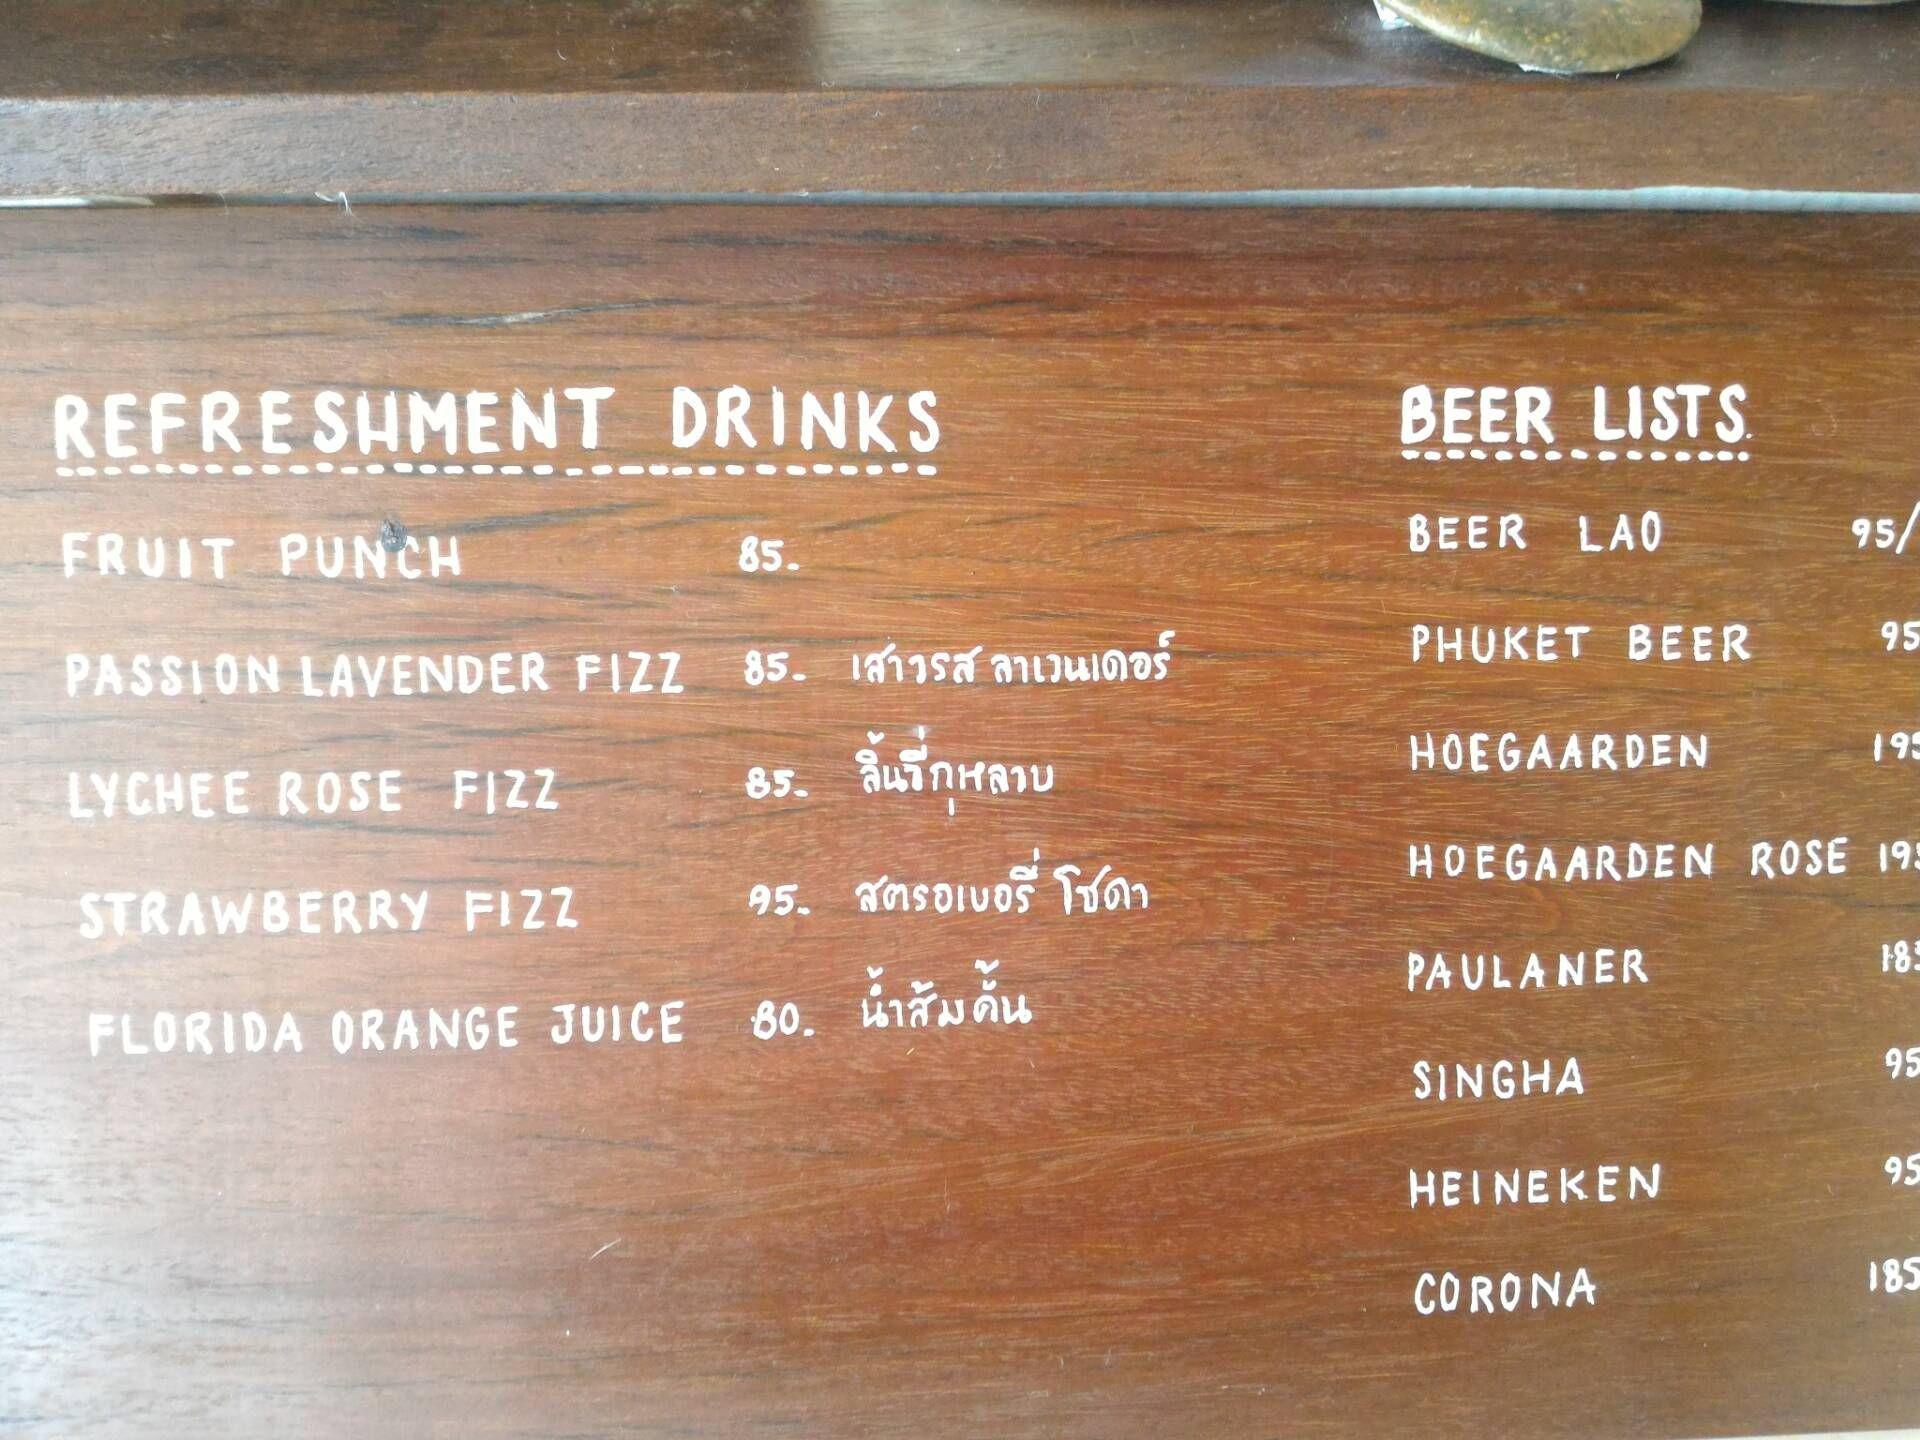 REFRESHMENT DRINKS
FRUIT PUNCH 85.-
PASSION LAVENDER FIZZ 85.- เสาวรส ลาเวนเดอร์
LYCHEE ROSE FIZZ 85.- ลิ้นจี่กุหลาบ
STRAWBERRY FIZZ 95.- สตรอเบอรี่ โซดา
FLORIDA ORANGE JUICE 80.- น้ำส้มคั้น
BEER LISTS.
BEER LAO 95/
PHUKET BEER 95
HOEGAARDEN 195
HOEGAARDEN ROSE 195
PAULANER 185
SINGHA 95
HEINEKEN 95
CORONA 185